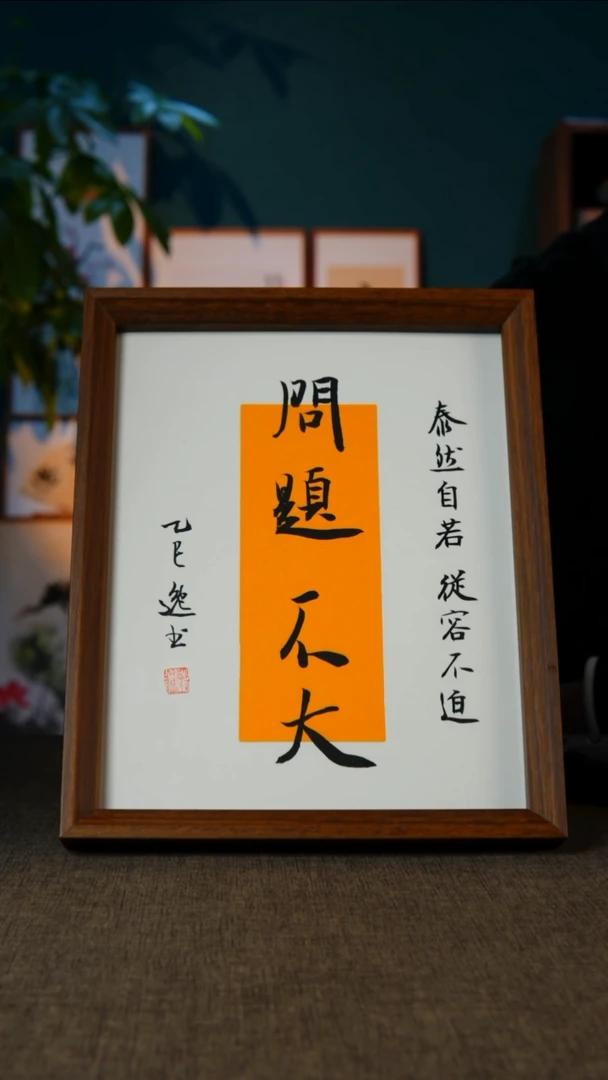 泰然自若 從容不迫
問題不大
乙巳逸书